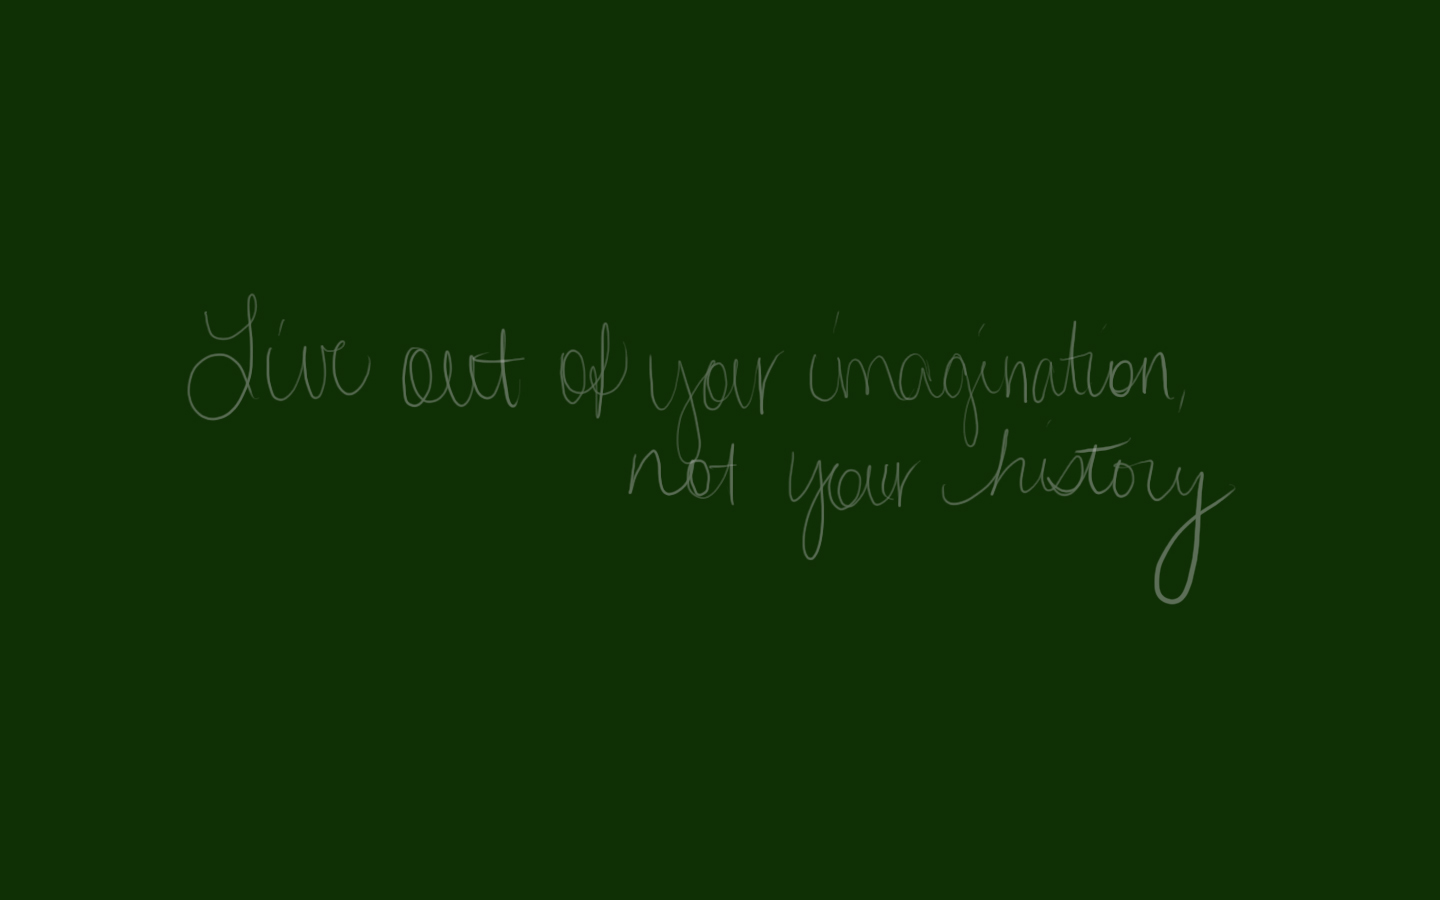 Live out of your imagination,
not your history